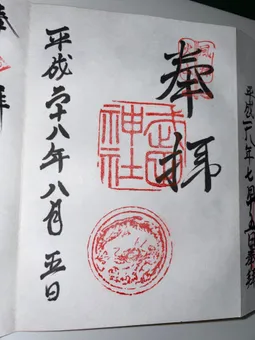 平成二八年七月
奉拝
神社
平成二十八年八月五日
拝